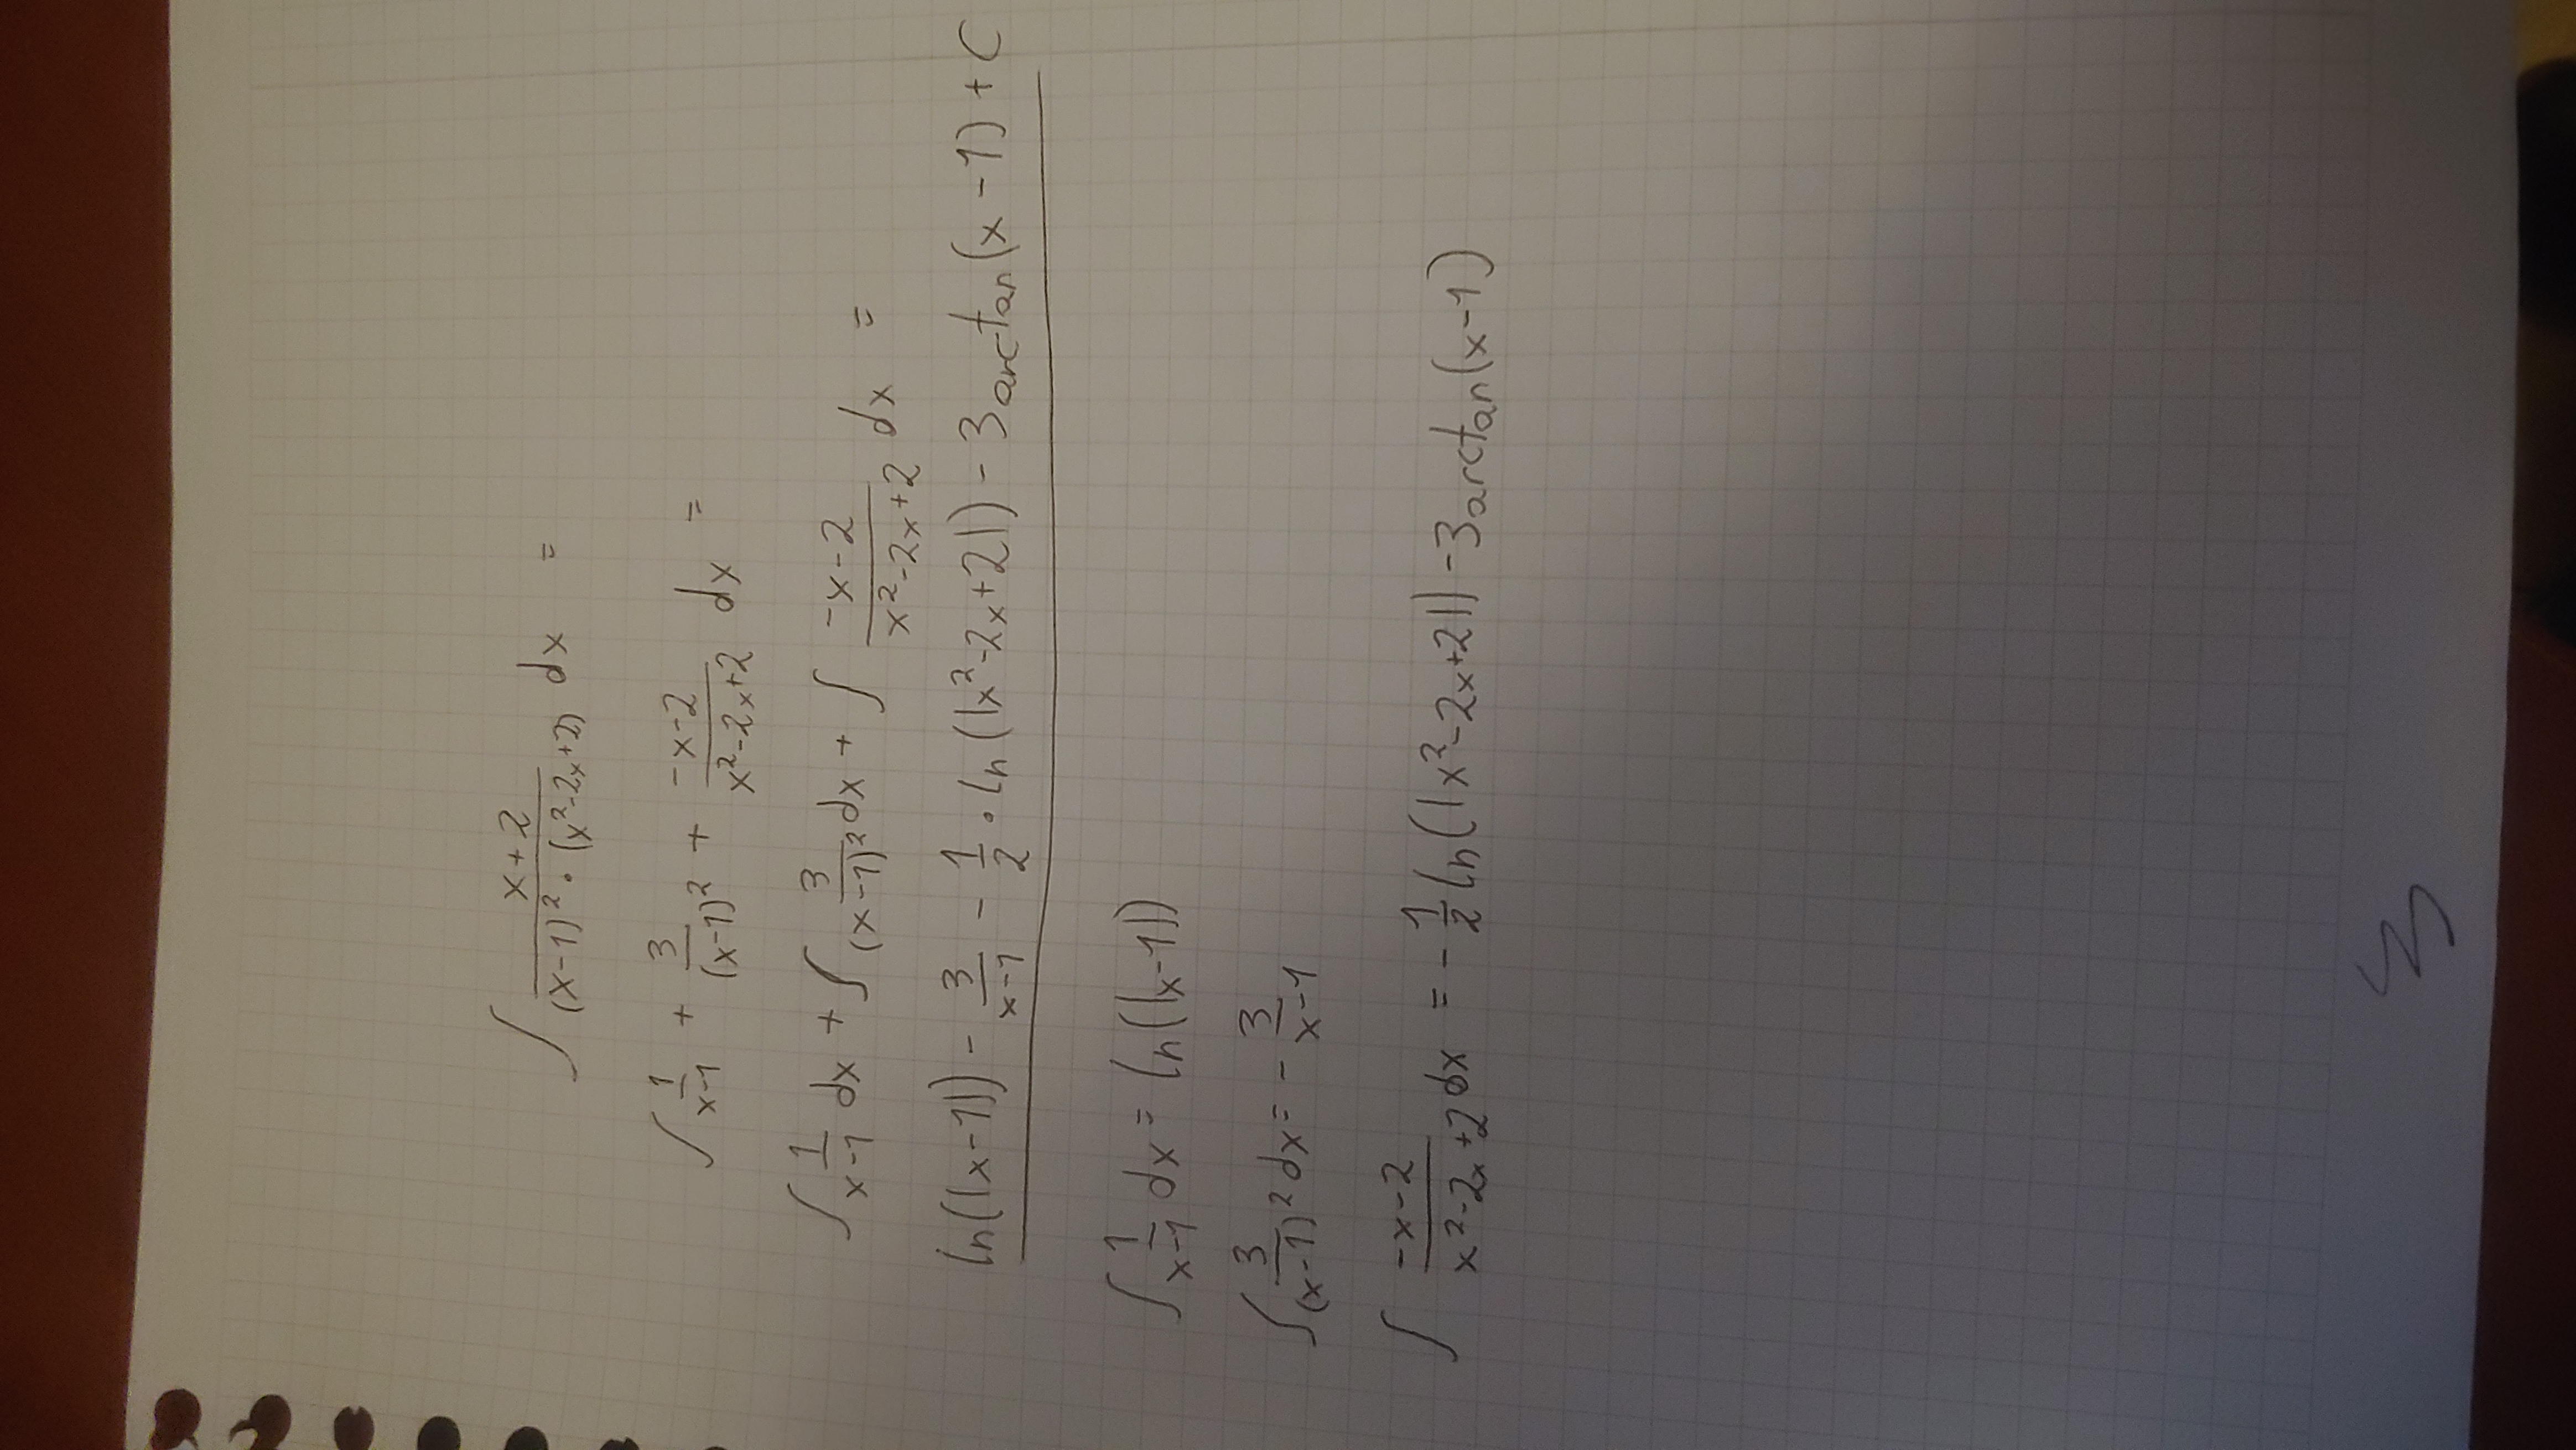 ∫ (x+2)/((x-1)²·(x²-2x+2)) dx =
∫ 1/(x-1) + 3/(x-1)² + (-x-2)/(x²-2x+2) dx =
∫ 1/(x-1) dx + ∫ 3/(x-1)² dx + ∫ (-x-2)/(x²-2x+2) dx =
ln(|x-1|) - 3/(x-1) - 1/2 · ln(|x²-2x+2|) - 3arctan(x-1) + C
∫ 1/(x-1) dx = ln(|x-1|)
∫ 3/(x-1)² dx = - 3/(x-1)
∫ (-x-2)/(x²-2x+2) dx = - 1/2 ln(|x²-2x+2|) - 3arctan(x-1)